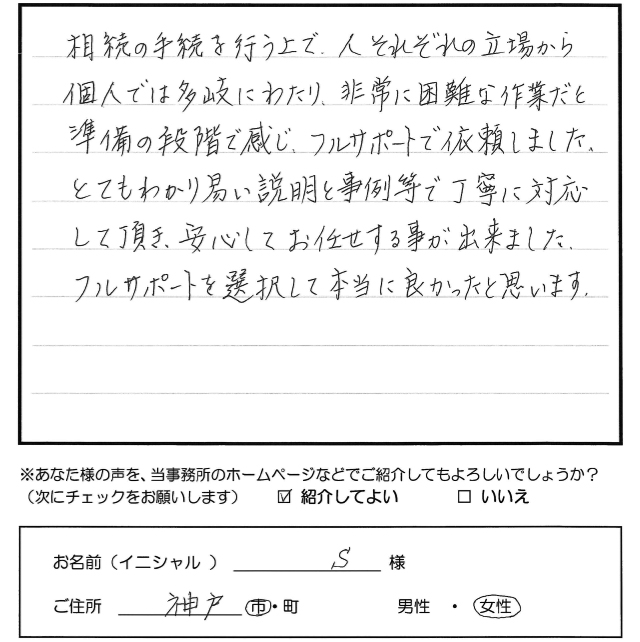 相続の手続を行う上で、人それぞれの立場から
個人では多岐にわたり、非常に困難な作業だと
準備の段階で感じ、フルサポートで依頼しました。
とてもわかり易い説明と事例等で丁寧に対応
して頂き、安心してお任せする事が出来ました。
フルサポートを選択して本当に良かったと思います。
※あなた様の声を、当事務所のホームページなどでご紹介してもよろしいでしょうか？
（次にチェックをお願いします） ☑ 紹介してよい □ いいえ
お名前（イニシャル ） S 様
ご住所 神戸 市・町 男性 ・ 女性